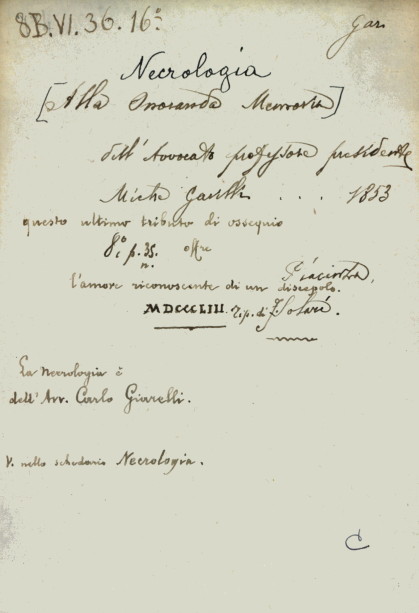 8B.VI.36.16º
Gar.
Necrologia
[Alla Onoranda Memoria]
dell'Avvocato professore presidente
1853
questo ultimo tributo di ossequio
8º p. 35. offre
n.
l'amore riconoscente di un discepolo.
Piacenza,
MDCCCLIII. Tip. di F. Solari.
La necrologia è
dell'Avv. Carlo Giarelli.
V. nello schedario Necrologia.
C